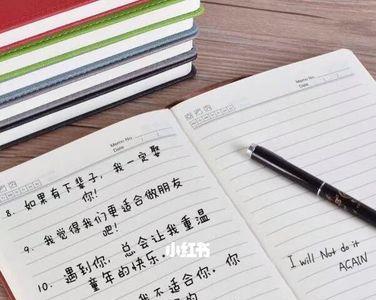 Memo No.
Date
8. 如果有下辈子,我一定娶
你!
9. 我觉得我们更适合做朋友
吧!
10. 遇到你,总会让我重温
童年的快乐。
我不适合你。你
小红书
Memo No.
Date
I will Not do it
AGAIN